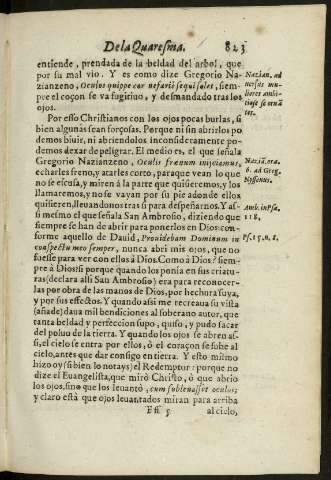 De la Quaresma. 823
entiende, prendada de la beldad del arbol, que
por su mal vio. Y es como dize Gregorio Na-
zianzeno, Oculos quippe cor nefarié sequi solet, siem
pre el coçon se va fugitiuo, y desmandado tras los
ojos.
Nazian. ad
uersus mu-
lieres ambi-
tiose se orna
tes.
Por esso Christianos con los ojos pocas burlas, si
bien algunas sean forçosas. Porque ni sin abrirlos po
demos biuir, ni abriendolos inconsideramente po
demos dexar de peligrar. El medio es, el que señala
Gregorio Nazianzeno, Oculis frænum inijciamus,
echarles freno, y atarles corto, paraque vean lo que
no se escusa, y miren á la parte que quisieremos, y los
llamaremos, y no se vayan por su pie adonde ellos
quisieren, lleuandonos tras si para despeñarnos. Y as-
si mesmo el que señala San Ambrosio, diziendo que
siempre se han de abrir para ponerlos en Dios: con-
forme aquello de Dauid, Prouidebam Dominum in
conspectu meo semper, nunca abri mis ojos, que no
fuesse para ver con ellos à Dios. Como à Dios? siem-
pre à Dios? si porque quando los ponia en sus criatu-
ras (declara assi San Ambrosio) era para reconocer-
las por obra de las manos de Dios, por hechura suya,
y por sus effectos. Y quando assi me recreaua su vista
(añade) daua mil bendiciones al soberano autor, que
tanta beldad y perfeccion supo, quiso, y pudo sacar
del poluo de la tierra. Y quando los ojos se abren as-
si, el cielo se entra por ellos, ò el coraçon se sube al
cielo, antes que dar consigo en tierra. Y esto mismo
hizo oy (si bien lo notays) el Redemptor: porque no
dize el Euangelista, que mirò Christo, ò que abrio
los ojos, sino que los leuantò, cum subleuasset oculos;
y claro està que ojos leuantados miran para arriba
Naziã. ora.
6. ad Greg.
Nissenus.
Amb. in Psa.
118.
Ps. 15. n. 8.
Fff 5 al cielo,